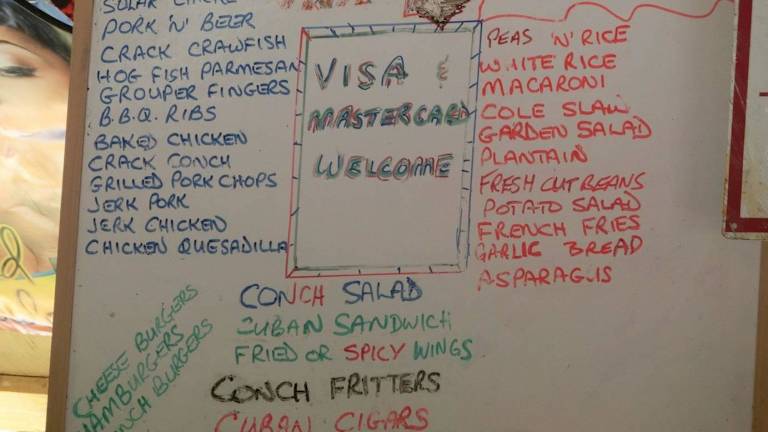 PORK 'N' BEER
CRACK CRAWFISH
HOG FISH PARMESAN
GROUPER FINGERS
B.B.Q. RIBS
BAKED CHICKEN
CRACK CONCH
GRILLED PORK CHOPS
JERK PORK
JERK CHICKEN
CHICKEN QUESADILLA
VISA &
MASTERCARD
WELCOME
PEAS 'N' RICE
WHITE RICE
MACARONI
COLE SLAW
GARDEN SALAD
PLANTAIN
FRESH CUT BEANS
POTATO SALAD
FRENCH FRIES
GARLIC BREAD
ASPARAGUS
CHEESE BURGERS
HAMBURGERS
BURGERS
CONCH SALAD
CUBAN SANDWICH
FRIED OR SPICY WINGS
CONCH FRITTERS
CUBAN CIGARS